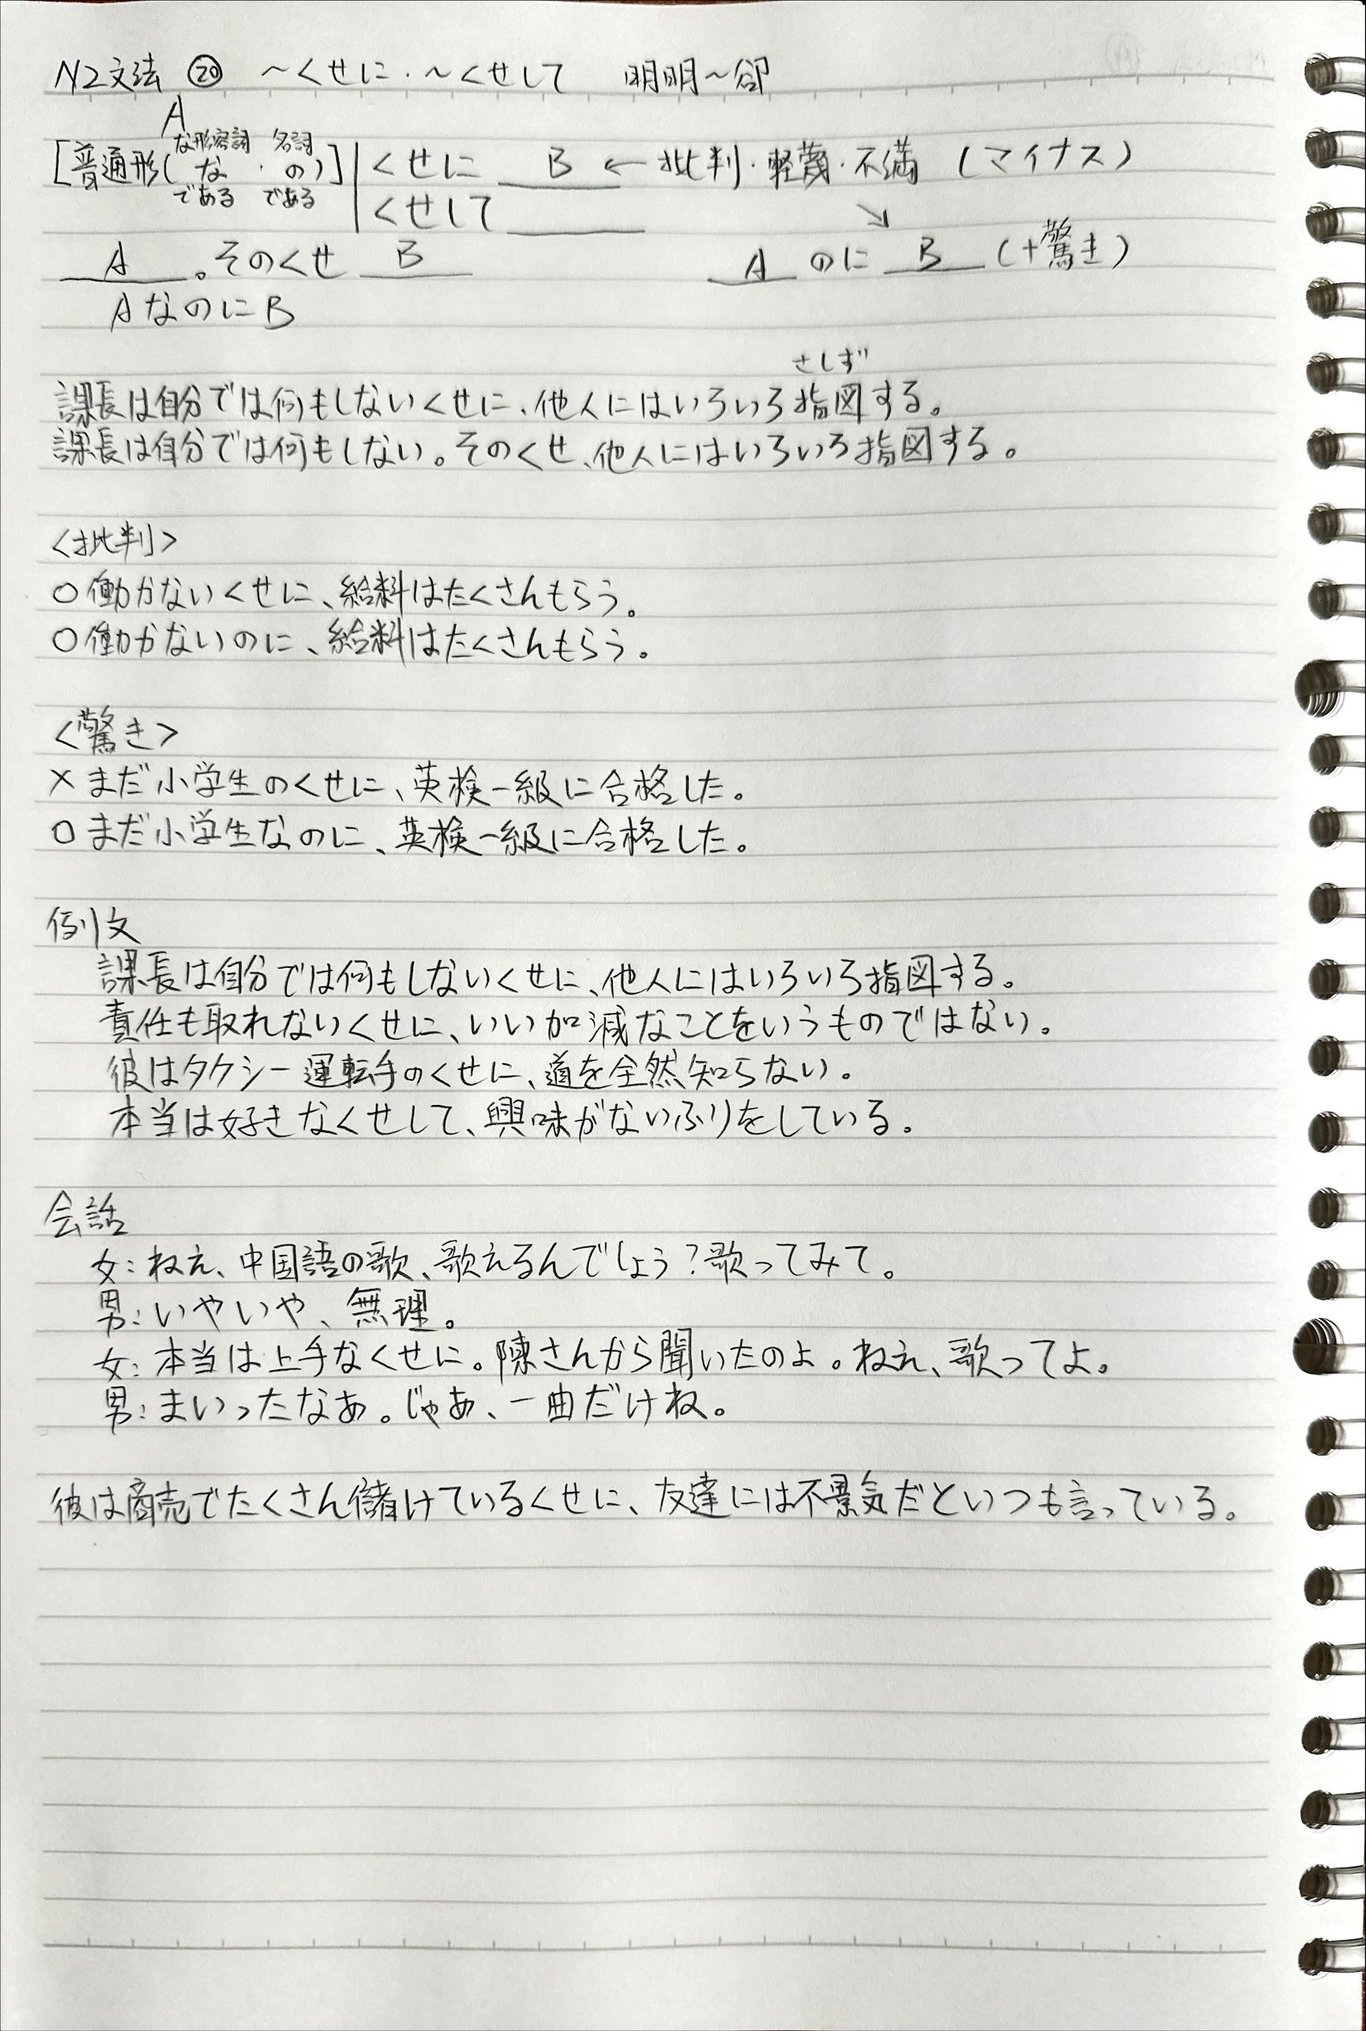 N2文法 ⑳ ～くせに・～くせして 明明～卻
A
な形容詞 名詞
[普通形(な・の)] くせに B ← 批判・軽蔑・不満 (マイナス)
である である
くせして ↘
A 。そのくせ B A のに B (+驚き)
AなのにB
さしず
課長は自分では何もしないくせに、他人にはいろいろ指図する。
課長は自分では何もしない。そのくせ、他人にはいろいろ指図する。
<批判>
○働かないくせに、給料はたくさんもらう。
○働かないのに、給料はたくさんもらう。
<驚き>
×まだ小学生のくせに、英検一級に合格した。
○まだ小学生なのに、英検一級に合格した。
例文
課長は自分では何もしないくせに、他人にはいろいろ指図する。
責任も取れないくせに、いい加減なことをいうものではない。
彼はタクシー運転手のくせに、道を全然知らない。
本当は好きなくせして、興味がないふりをしている。
会話
女:ねえ、中国語の歌、歌えるんでしょう?歌ってみて。
男:いやいや、無理。
女:本当は上手なくせに。陳さんから聞いたのよ。ねえ、歌ってよ。
男:まいったなあ。じゃあ、一曲だけね。
彼は商売でたくさん儲けているくせに、友達には不景気だといつも言っている。